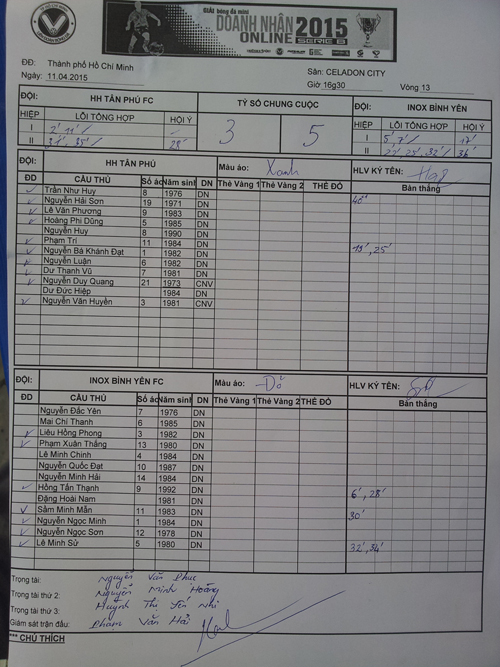 GIẢI bóng đá mini
DOANH NHÂN 2015
ONLINE SERIE B
ĐĐ: Thành phố Hồ Chí Minh
Ngày: 11.04.2015
Sân: CELADON CITY
Giờ 16g30 Vòng 13
ĐỘI: HH TÂN PHÚ FC TỶ SỐ CHUNG CUỘC ĐỘI: INOX BÌNH YÊN
HIỆP LỖI TỔNG HỢP HỘI Ý 3 5 HIỆP LỖI TỔNG HỢP HỘI Ý
I 2' 11' / - I 5', 7' / 17'
II 31', 35' / 28' II 22', 25', 32' / 36'
ĐỘI: HH TÂN PHÚ Màu áo: Xanh HLV KÝ TÊN:
ĐD CẦU THỦ Số áo Năm sinh DN Thẻ Vàng 1 Thẻ Vàng 2 THẺ ĐỎ Bàn thắng
Trần Như Huy 8 1976 DN
Nguyễn Hải Sơn 19 1971 DN 40'
Lê Văn Phương 9 1983 DN
Hoàng Phi Dũng 5 1985 DN
Nguyễn Huy 8 1990 DN
Phạm Trí 11 1984 DN
Nguyễn Bá Khánh Đạt 1 1982 DN 19', 25'
Nguyễn Luận 6 1982 DN
Dư Thanh Vũ 7 1981 DN
Nguyễn Duy Quang 21 1973 CNV
Dư Đức Hiệp 1984 DN
Nguyễn Văn Huyên 3 1981 CNV
ĐỘI: INOX BÌNH YÊN FC Màu áo: Đỏ HLV KÝ TÊN:
ĐD CẦU THỦ Số áo Năm sinh DN Thẻ Vàng 1 Thẻ Vàng 2 THẺ ĐỎ Bàn thắng
Nguyễn Đắc Yên 7 1976 DN
Mai Chí Thanh 6 1985 DN
Liêu Hồng Phong 3 1982 DN
Phạm Xuân Thắng 13 1980 DN
Lê Minh Chinh 4 1984 DN
Nguyễn Quốc Đạt 10 1987 DN
Nguyễn Minh Hải 14 1984 DN
Hồng Tấn Thạnh 9 1992 DN 6', 28'
Đặng Hoài Nam 1981 DN
Sầm Minh Mẫn 11 1983 DN 30'
Nguyễn Ngọc Minh 1 1984 DN
Nguyễn Ngọc Sơn 12 1978 DN
Lê Minh Sử 5 1980 DN 32', 34'
Trọng tài: Nguyễn Văn Phúc
Trọng tài thứ 2: Nguyễn Minh Hoàng
Trọng tài thứ 3: Huỳnh Thị Yến Nhi
Giám sát trận đấu: Phạm Văn Hải
*** CHÚ THÍCH